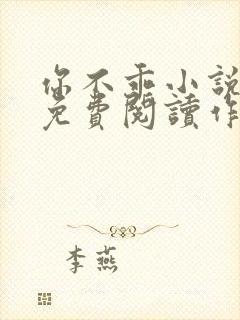 你不乖小說
免費閱讀作
李燕